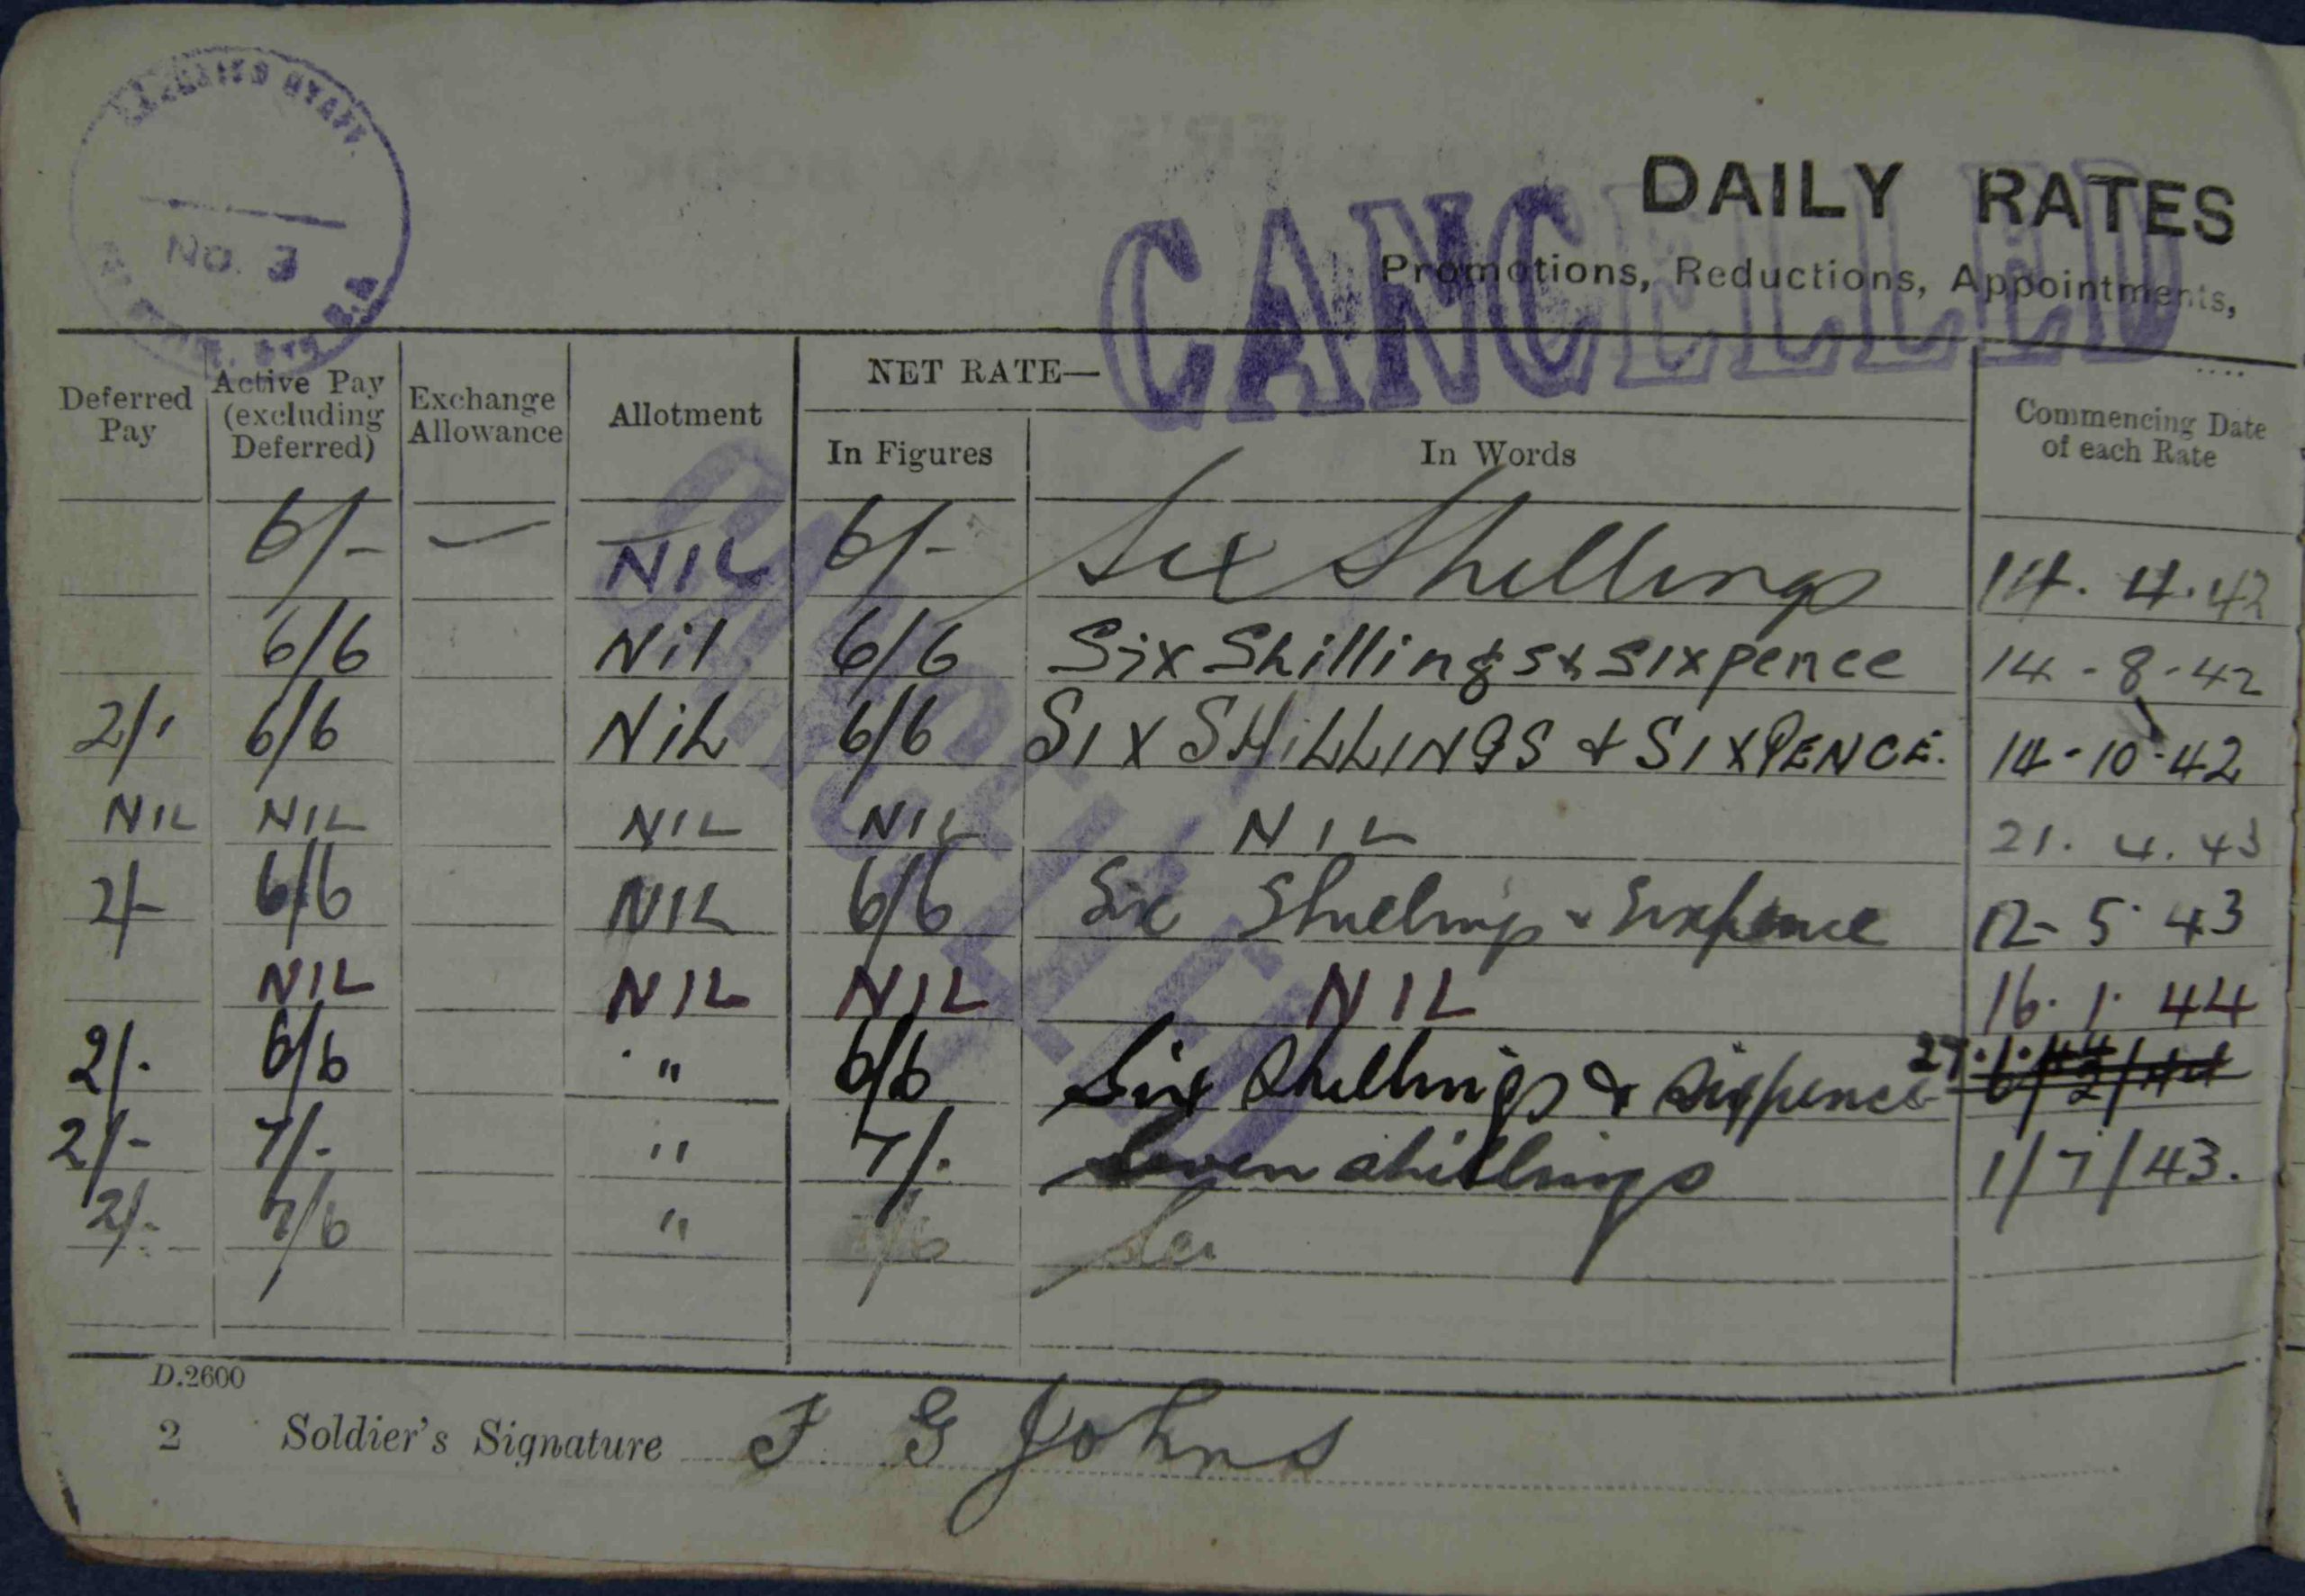 NO. 3
DAILY RATES
CANCELLED
Promotions, Reductions, Appointments,
Deferred Pay
Active Pay (excluding Deferred)
Exchange Allowance
Allotment
NET RATE—
In Figures
In Words
Commencing Date of each Rate
CANCELLED
6/- — NIL 6/- Six Shillings 14. 4. 42
6/6 Nil 6/6 Six Shillings & Sixpence 14-8-42
2/- 6/6 NiL 6/6 SIX SHiLLINGS & SIXPENCE. 14-10-42
NIL NIL NIL NIL NIL 21. 4. 43
2/- 6/6 NIL 6/6 Six Shillings & Sixpence 12-5-43
NIL NIL NIL NIL 16. 1. 44
2/- 6/6 " 6/6 Six Shillings & Sixpence 27.1.44
2/- 7/- " 7/- Seven shillings 1/7/43.
2/- 7/6 " 7/6 Sev
D.2600
2 Soldier's Signature F G Johns